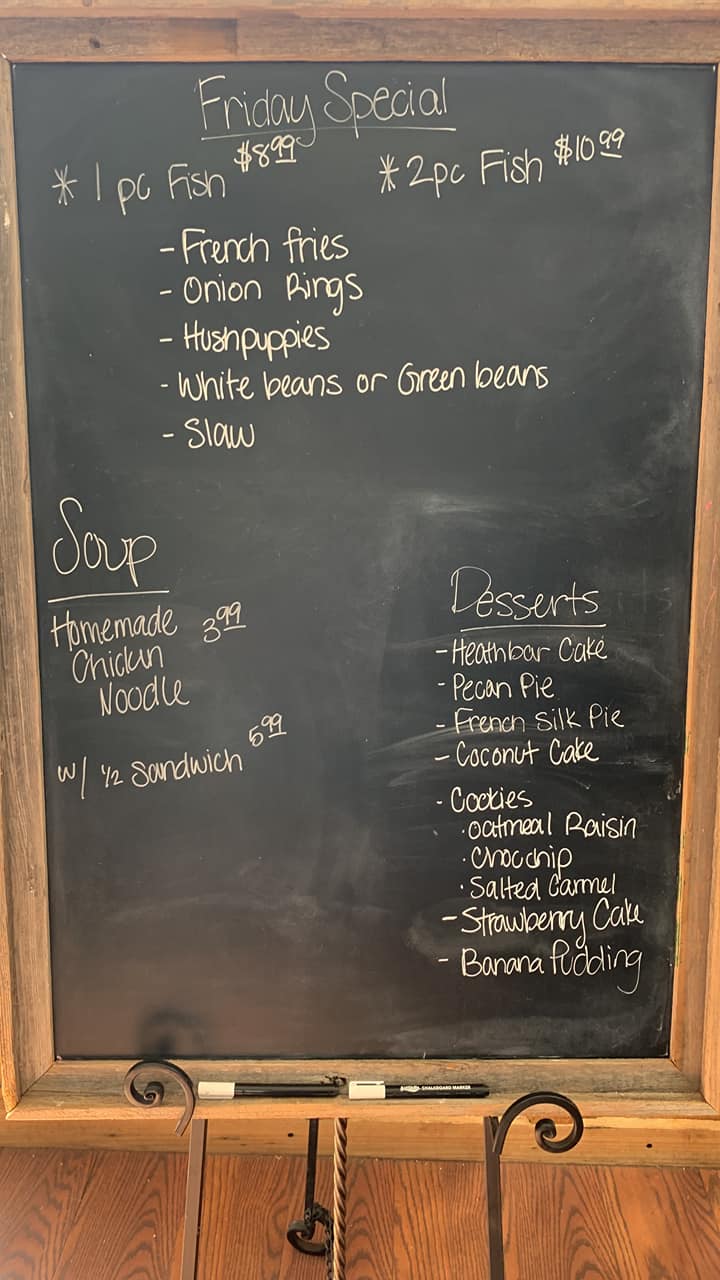 Friday Special
* 1 pc Fish $8.99
* 2pc Fish $10.99
- French fries
- Onion Rings
- Hushpuppies
- White beans or Green beans
- Slaw
Soup
Homemade 3.99
Chicken
Noodle
w/ 1/2 Sandwich 5.99
Desserts
- Heathbar Cake
- Pecan Pie
- French Silk Pie
- Coconut Cake
- Cookies
· oatmeal Raisin
· Choc chip
· Salted Carmel
- Strawberry Cake
- Banana Pudding
CHALKBOARD MARKER